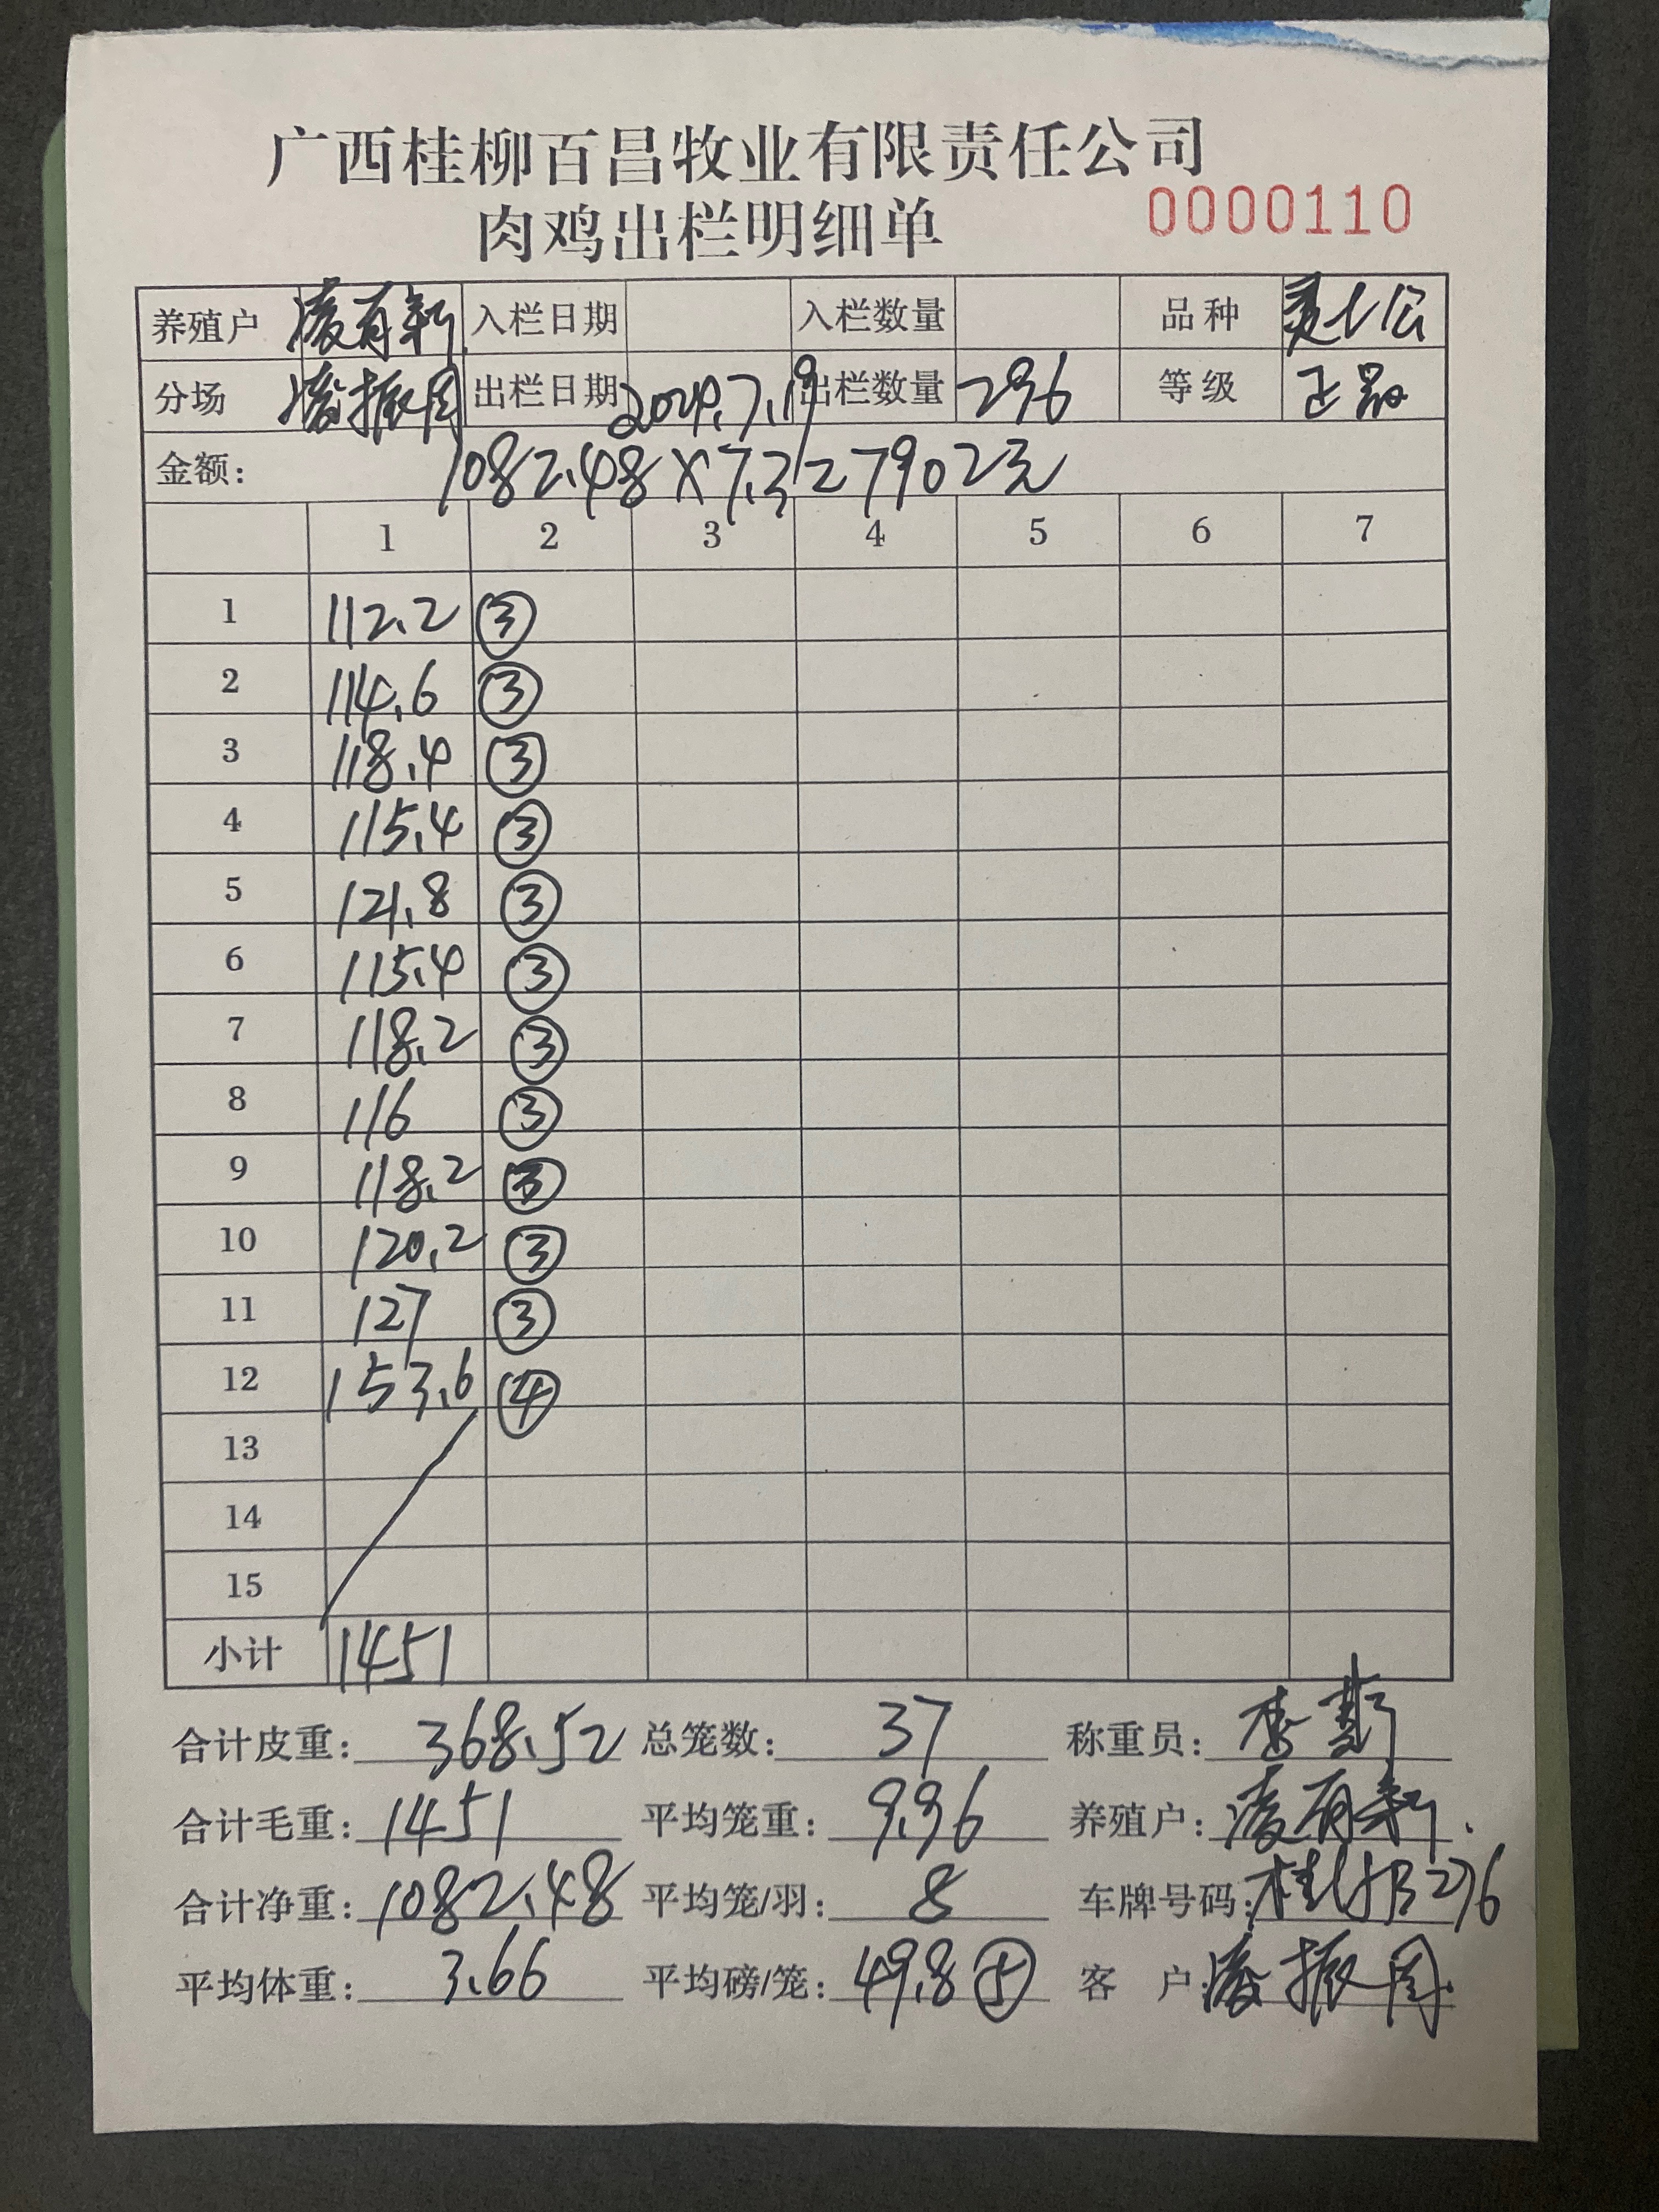 广西桂柳百昌牧业有限责任公司
肉鸡出栏明细单 0000110
养殖户 凌有新 入栏日期 入栏数量 品种
分场 凌振周 出栏日期 2024.7.19 出栏数量 296 等级 正品
金额: 1082.48×7.3=7902元
1 2 3 4 5 6 7
1 112.2 ③
2 114.6 ③
3 118.4 ③
4 115.4 ③
5 121.8 ③
6 115.4 ③
7 118.2 ③
8 116 ③
9 118.2 ③
10 120.2 ③
11 127 ③
12 153.6 ④
13
14
15
小计 1451
合计皮重: 368.52 总笼数: 37 称重员: 李
合计毛重: 1451 平均笼重: 9.96 养殖户: 凌有新.
合计净重: 1082.48 平均笼/羽: 8 车牌号码: 276
平均体重: 3.66 平均磅/笼: 49.8 ⑤ 客 户: 凌振周.